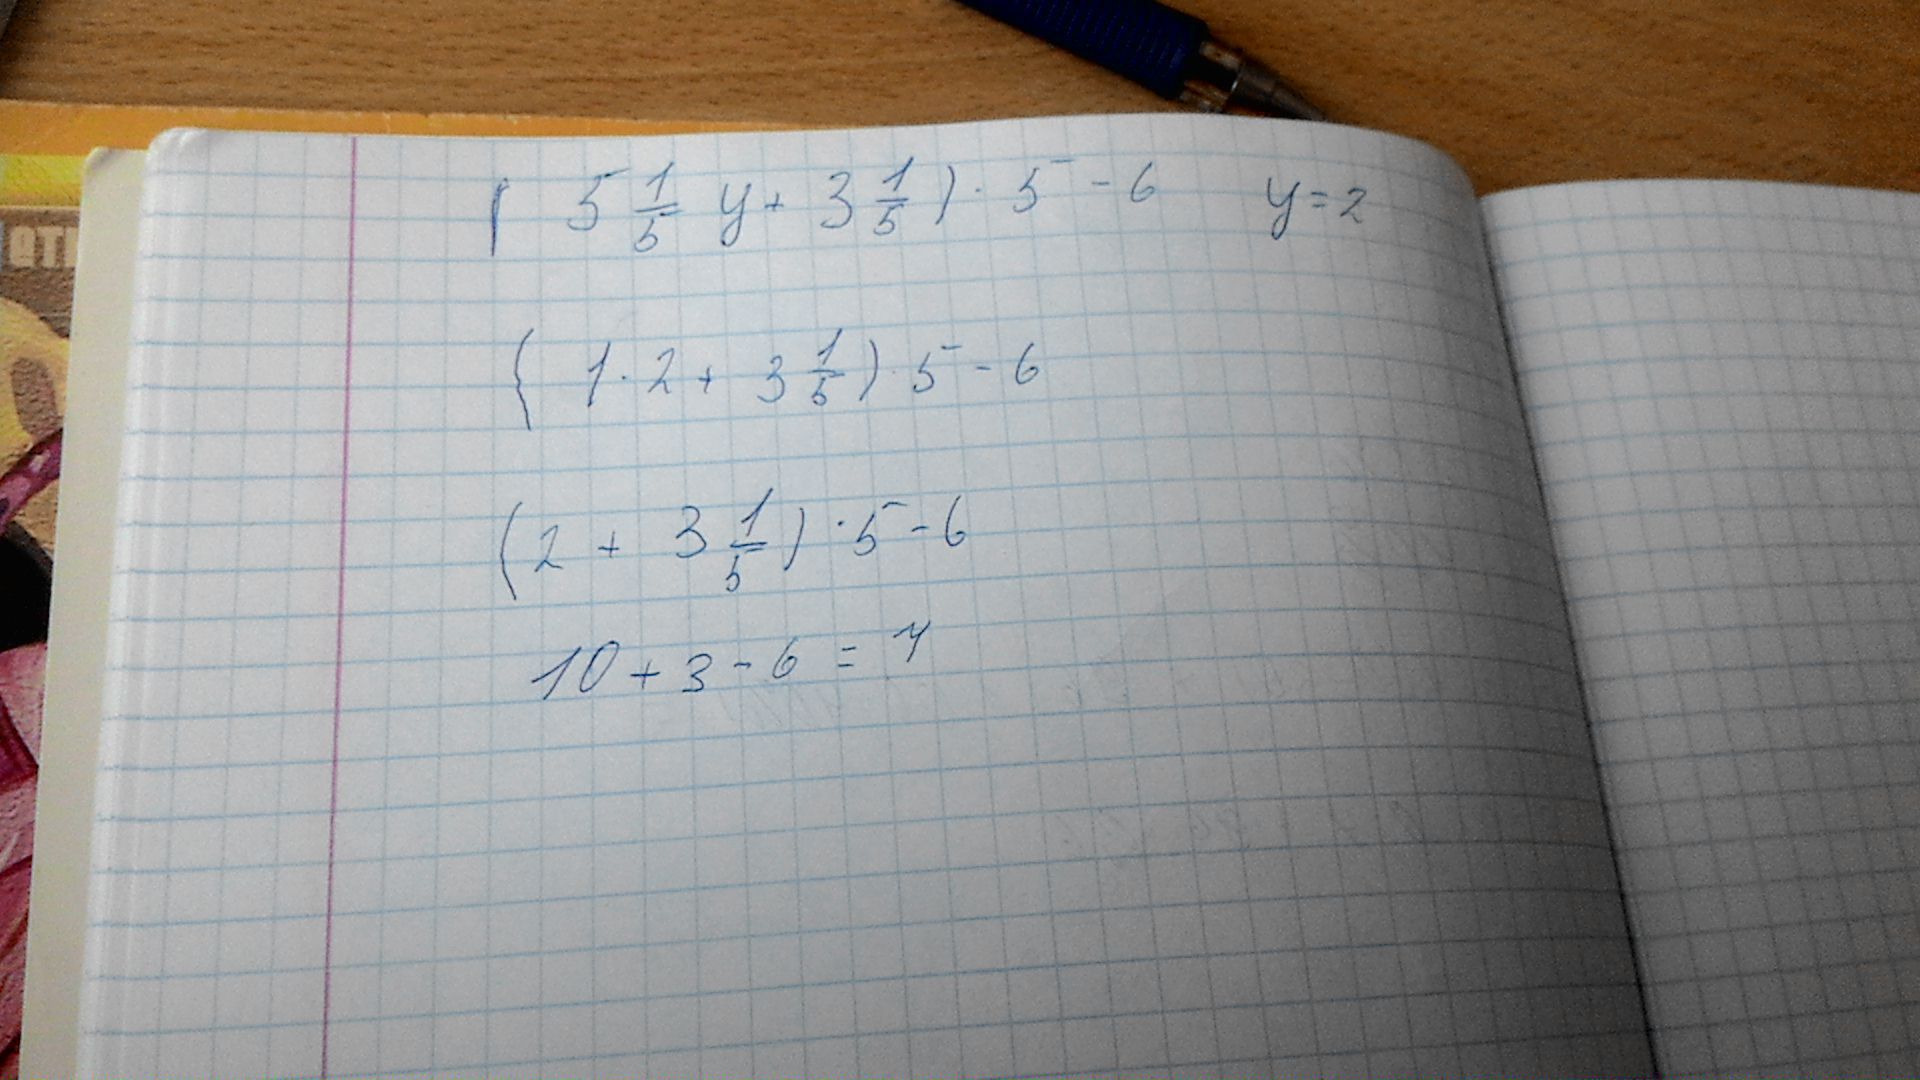 ( 5 1/5 y + 3 1/5 ) · 5 - 6 y = 2
( 1 · 2 + 3 1/5 ) · 5 - 6
( 2 + 3 1/5 ) · 5 - 6
10 + 3 - 6 = 7